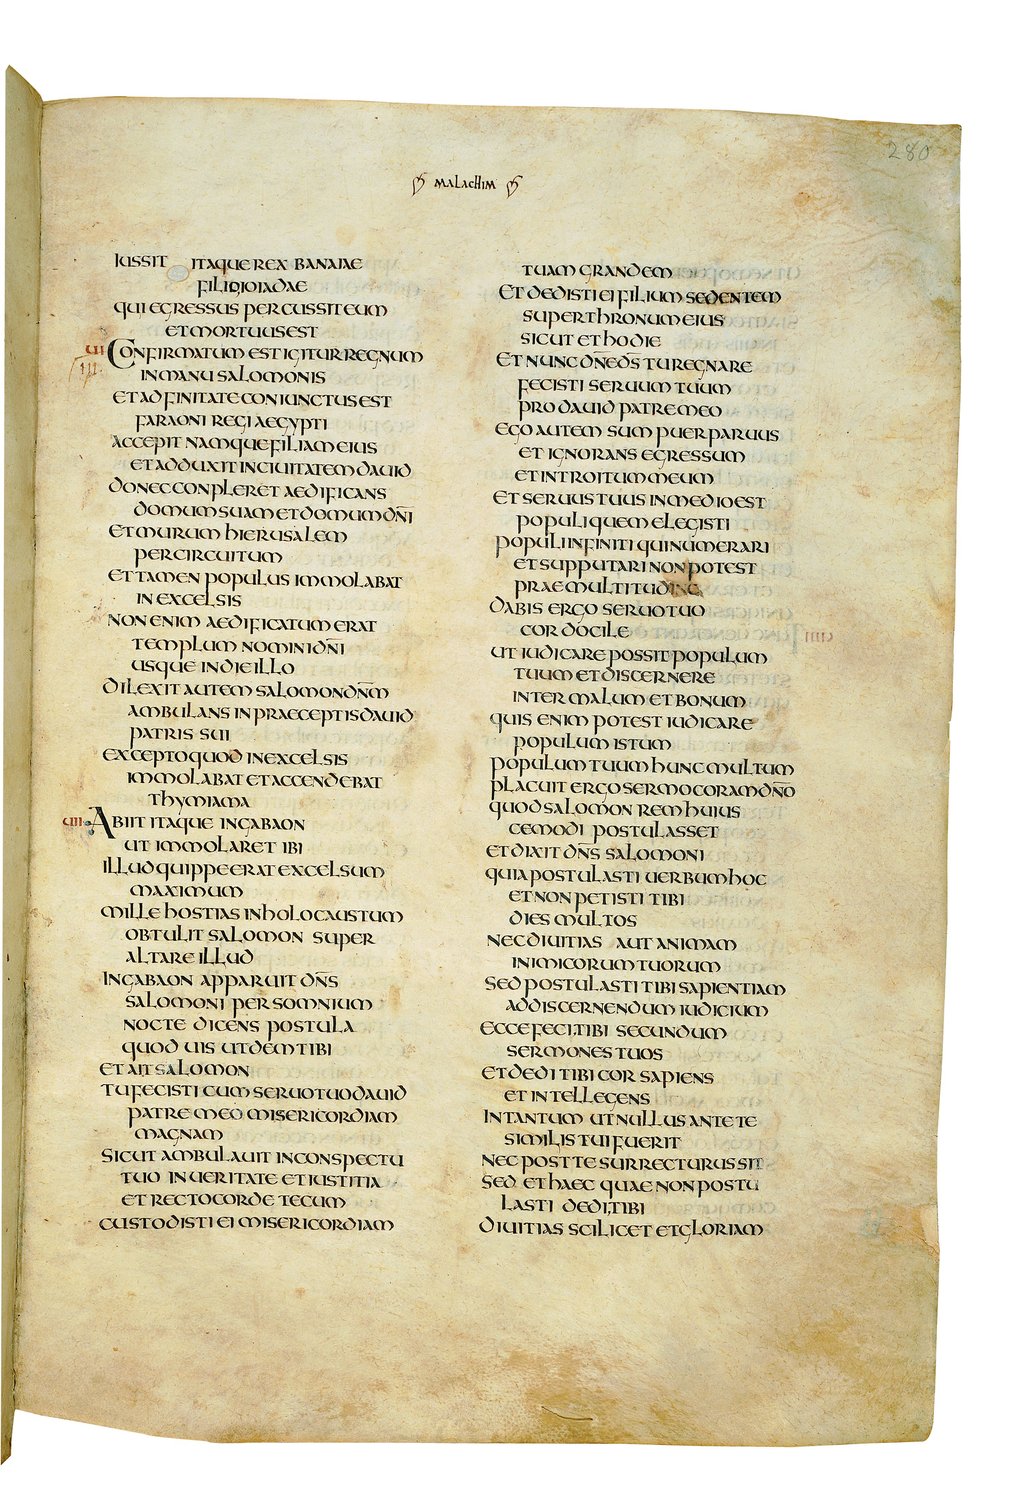 280
MALACHIM
IUSSIT ITAQUE REX BANAIAE
FILIO IOIADAE
QUI EGRESSUS PERCUSSIT EUM
ET MORTUUS EST
UI CONFIRMATUM EST IGITUR REGNUM
III IN MANU SALOMONIS
ET ADFINITATE CONIUNCTUS EST
FARAONI REGI AEGYPTI
ACCEPIT NAMQUE FILIAM EIUS
ET ADDUXIT IN CIUITATEM DAUID
DONEC CONPLERET AEDIFICANS
DOMUM SUAM ET DOMUM DN̄I
ET MURUM HIERUSALEM
PER CIRCUITUM
ET TAMEN POPULUS IMMOLABAT
IN EXCELSIS
NON ENIM AEDIFICATUM ERAT
TEMPLUM NOMINI DN̄I
USQUE IN DIE ILLO
DILEXIT AUTEM SALOMON DN̄M
AMBULANS IN PRAECEPTIS DAUID
PATRIS SUI
EXCEPTO QUOD IN EXCELSIS
IMMOLABAT ET ACCENDEBAT
THYMIAMA
UII ABIIT ITAQUE IN GABAON
UT IMMOLARET IBI
ILLUD QUIPPE ERAT EXCELSUM
MAXIMUM
MILLE HOSTIAS IN HOLOCAUSTUM
OBTULIT SALOMON SUPER
ALTARE ILLUD
IN GABAON APPARUIT DN̄S
SALOMONI PER SOMNIUM
NOCTE DICENS POSTULA
QUOD UIS UT DEM TIBI
ET AIT SALOMON
TU FECISTI CUM SERUO TUO DAUID
PATRE MEO MISERICORDIAM
MAGNAM
SICUT AMBULAUIT IN CONSPECTU
TUO IN UERITATE ET IUSTITIA
ET RECTO CORDE TECUM
CUSTODISTI EI MISERICORDIAM
TUAM GRANDEM
ET DEDISTI EI FILIUM SEDENTEM
SUPER THRONUM EIUS
SICUT ET HODIE
ET NUNC DN̄E DS̄ TU REGNARE
FECISTI SERUUM TUUM
PRO DAUID PATRE MEO
EGO AUTEM SUM PUER PARUUS
ET IGNORANS EGRESSUM
ET INTROITUM MEUM
ET SERUUS TUUS IN MEDIO EST
POPULI QUEM ELEGISTI
POPULI INFINITI QUI NUMERARI
ET SUPPUTARI NON POTEST
PRAE MULTITUDINE
DABIS ERGO SERUO TUO
COR DOCILE
UT IUDICARE POSSIT POPULUM
TUUM ET DISCERNERE
INTER MALUM ET BONUM
QUIS ENIM POTEST IUDICARE
POPULUM ISTUM
POPULUM TUUM HUNC MULTUM
PLACUIT ERGO SERMO CORAM DN̄O
QUOD SALOMON REM HUIUS
CEMODI POSTULASSET
ET DIXIT DN̄S SALOMONI
QUIA POSTULASTI UERBUM HOC
ET NON PETISTI TIBI
DIES MULTOS
NEC DIUITIAS AUT ANIMAM
INIMICORUM TUORUM
SED POSTULASTI TIBI SAPIENTIAM
AD DISCERNENDUM IUDICIUM
ECCE FECI TIBI SECUNDUM
SERMONES TUOS
ET DEDI TIBI COR SAPIENS
ET INTELLEGENS
IN TANTUM UT NULLUS ANTE TE
SIMILIS TUI FUERIT
NEC POST TE SURRECTURUS SIT
SED ET HAEC QUAE NON POSTU
LASTI DEDI TIBI
DIUITIAS SCILICET ET GLORIAM